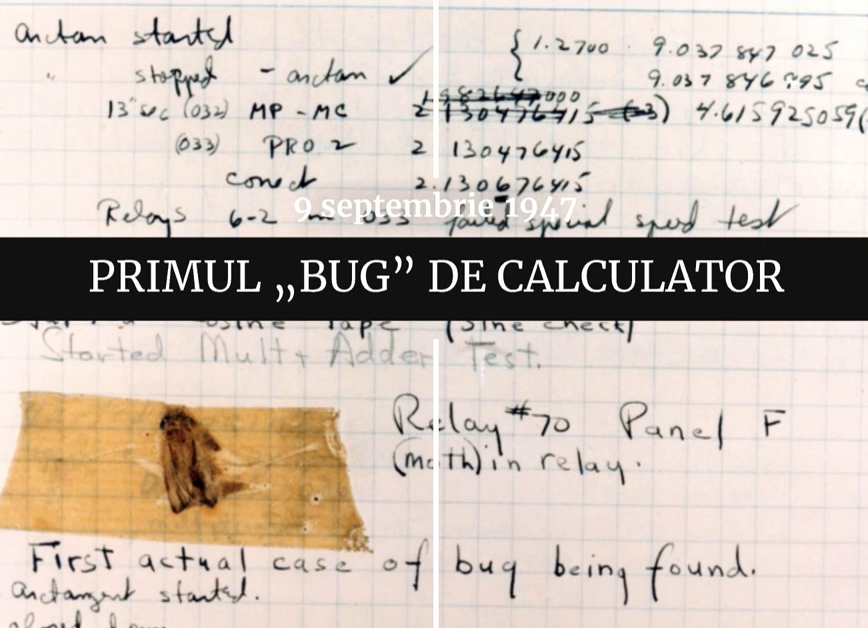 arctan started
" stopped - arctan ✓
13" sec (032) MP - MC
(033) PRO 2
conect
Relays 6-2 in 033 failed special speed test
{ 1.2700 9.037 847 025
9.037 846 995
1.982647000
2.130476415 (-3) 4.615925059(
2 130476415
2.130676415
9 septembrie 1947
PRIMUL „BUG” DE CALCULATOR
Tape (Sine check)
Started Mult + Adder Test.
Relay #70 Panel F
(moth) in relay.
First actual case of bug being found.
arctangent started.